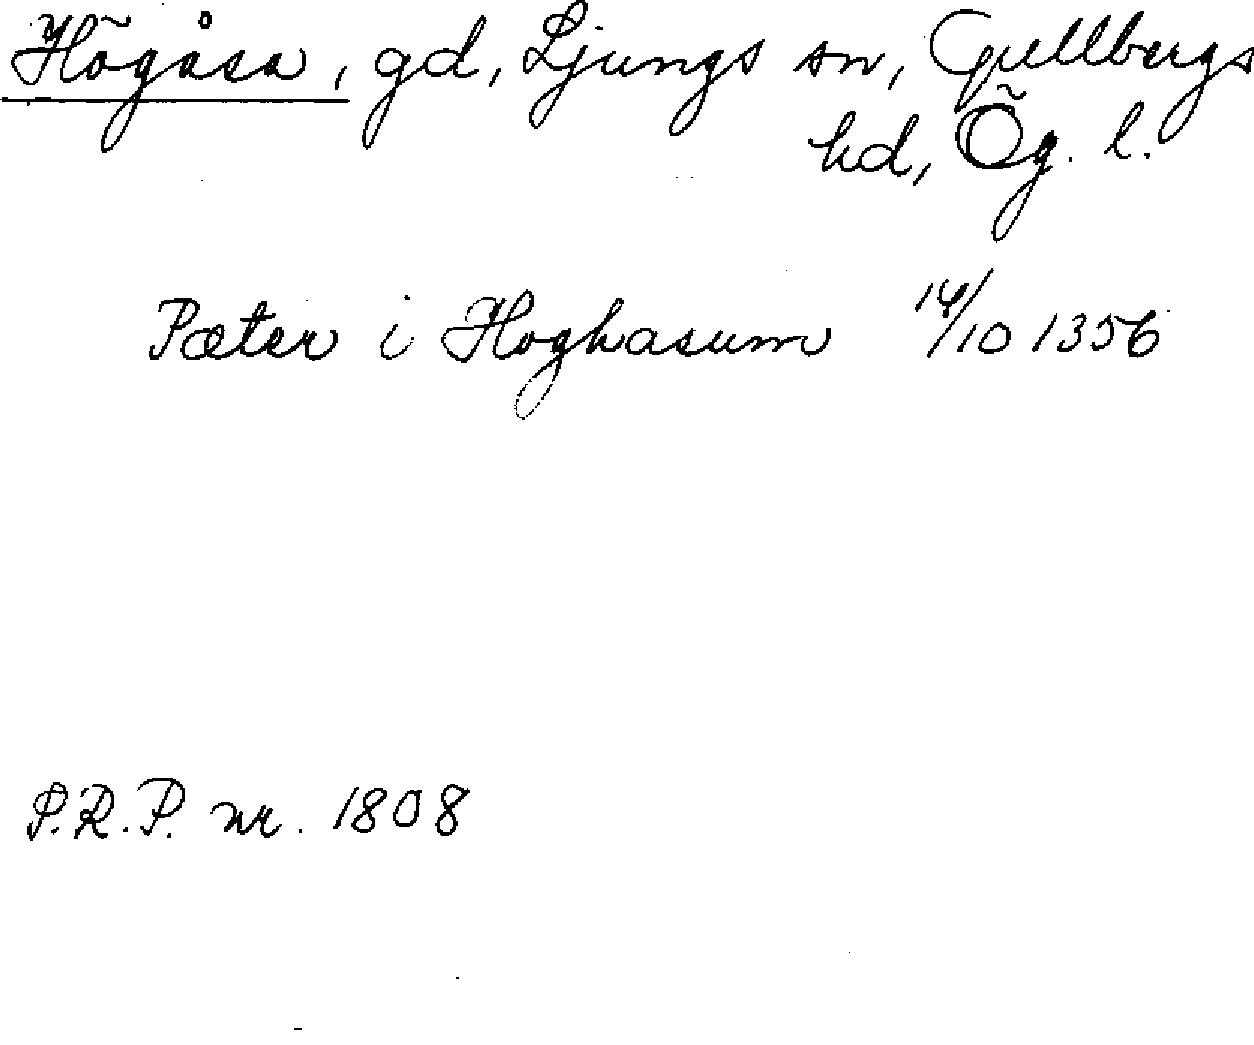 Högåsa, gd, Ljungs sn, Gullbergs
hd, Ög. l.
Pæter i Hoghasum 14/10 1356
P.R.P. nr. 1808